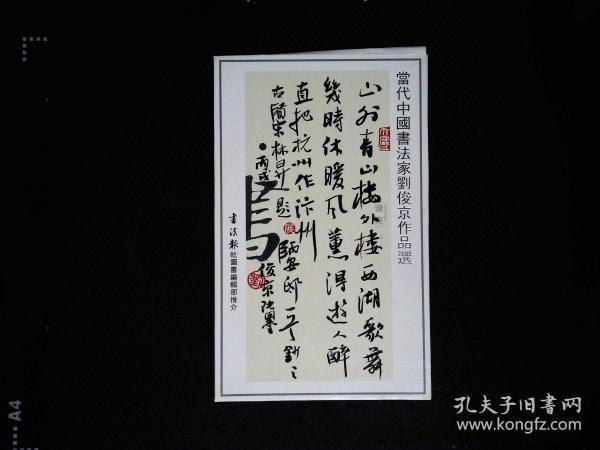 當代中國書法家劉俊京作品選
山外青山樓外樓西湖歌舞
幾時休暖風薰得遊人醉
直把杭州作汴州
古隱宋林昇題
臨安邸一首
丙戌
俊京
書法報社圖書編輯部推介
A4
孔夫子旧书网
www.kongfz.com